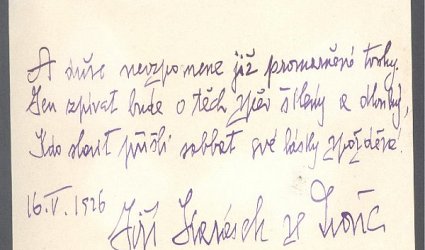 A duše nevzpomene již promarněné touhy.
Jen zpívat bude o těch zpěv šílený a dlouhý,
Kdo slavit přišli sabbat své lásky zpožděné.
16. V. 1926
Jiří Karásek ze Lvovic